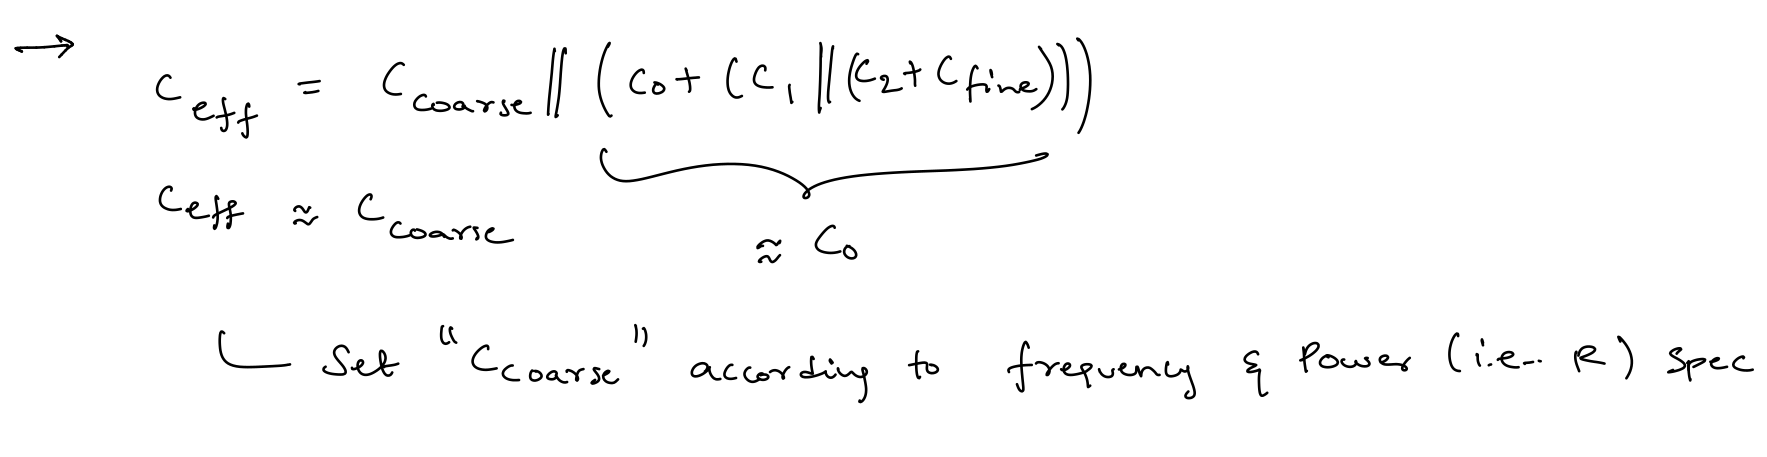 → C_eff = C_coarse || (C_0 + (C_1 || (C_2 + C_fine)))
C_eff ≈ C_coarse
≈ C_0
Set "C_coarse" according to frequency & Power (i.e.. R) spec